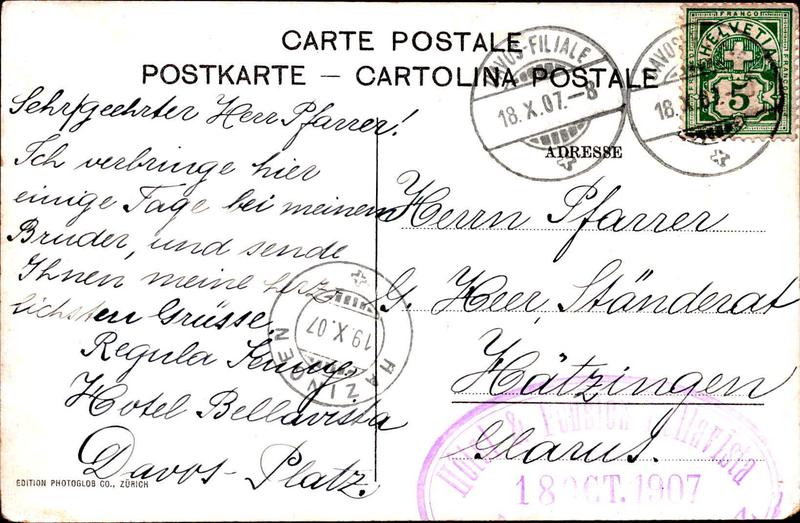 CARTE POSTALE
POSTKARTE – CARTOLINA POSTALE
ADRESSE
Sehr geehrter Herr Pfarrer!
Ich verbringe hier
einige Tage bei meinem
Bruder, und sende
Ihnen meine herz-
lichsten Grüsse.
Regula Jenny
Hotel Bellavista
Davos-Platz.
Herrn Pfarrer
G. Heer, Ständerat
Hätzingen
Glarus.
DAVOS-FILIALE
18.X.07.-8
DAVOS
18.X.07
FRANCO
HELVETIA
5
HÄTZINGEN
19.X.07
Hotel & Pension Bellavista
18 OCT. 1907
EDITION PHOTOGLOB CO., ZÜRICH